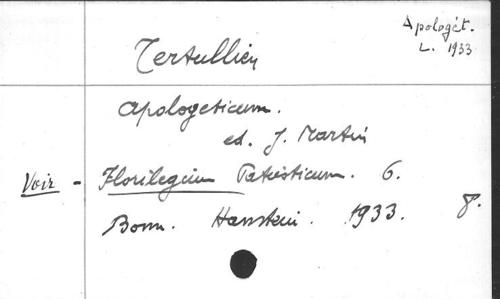 Apologét.
L. 1933
Tertullien
Apologeticum.
ed. J. Martin
Voir - Florilegium Patristicum. 6.
Bonn. Hanstein. 1933. 8.